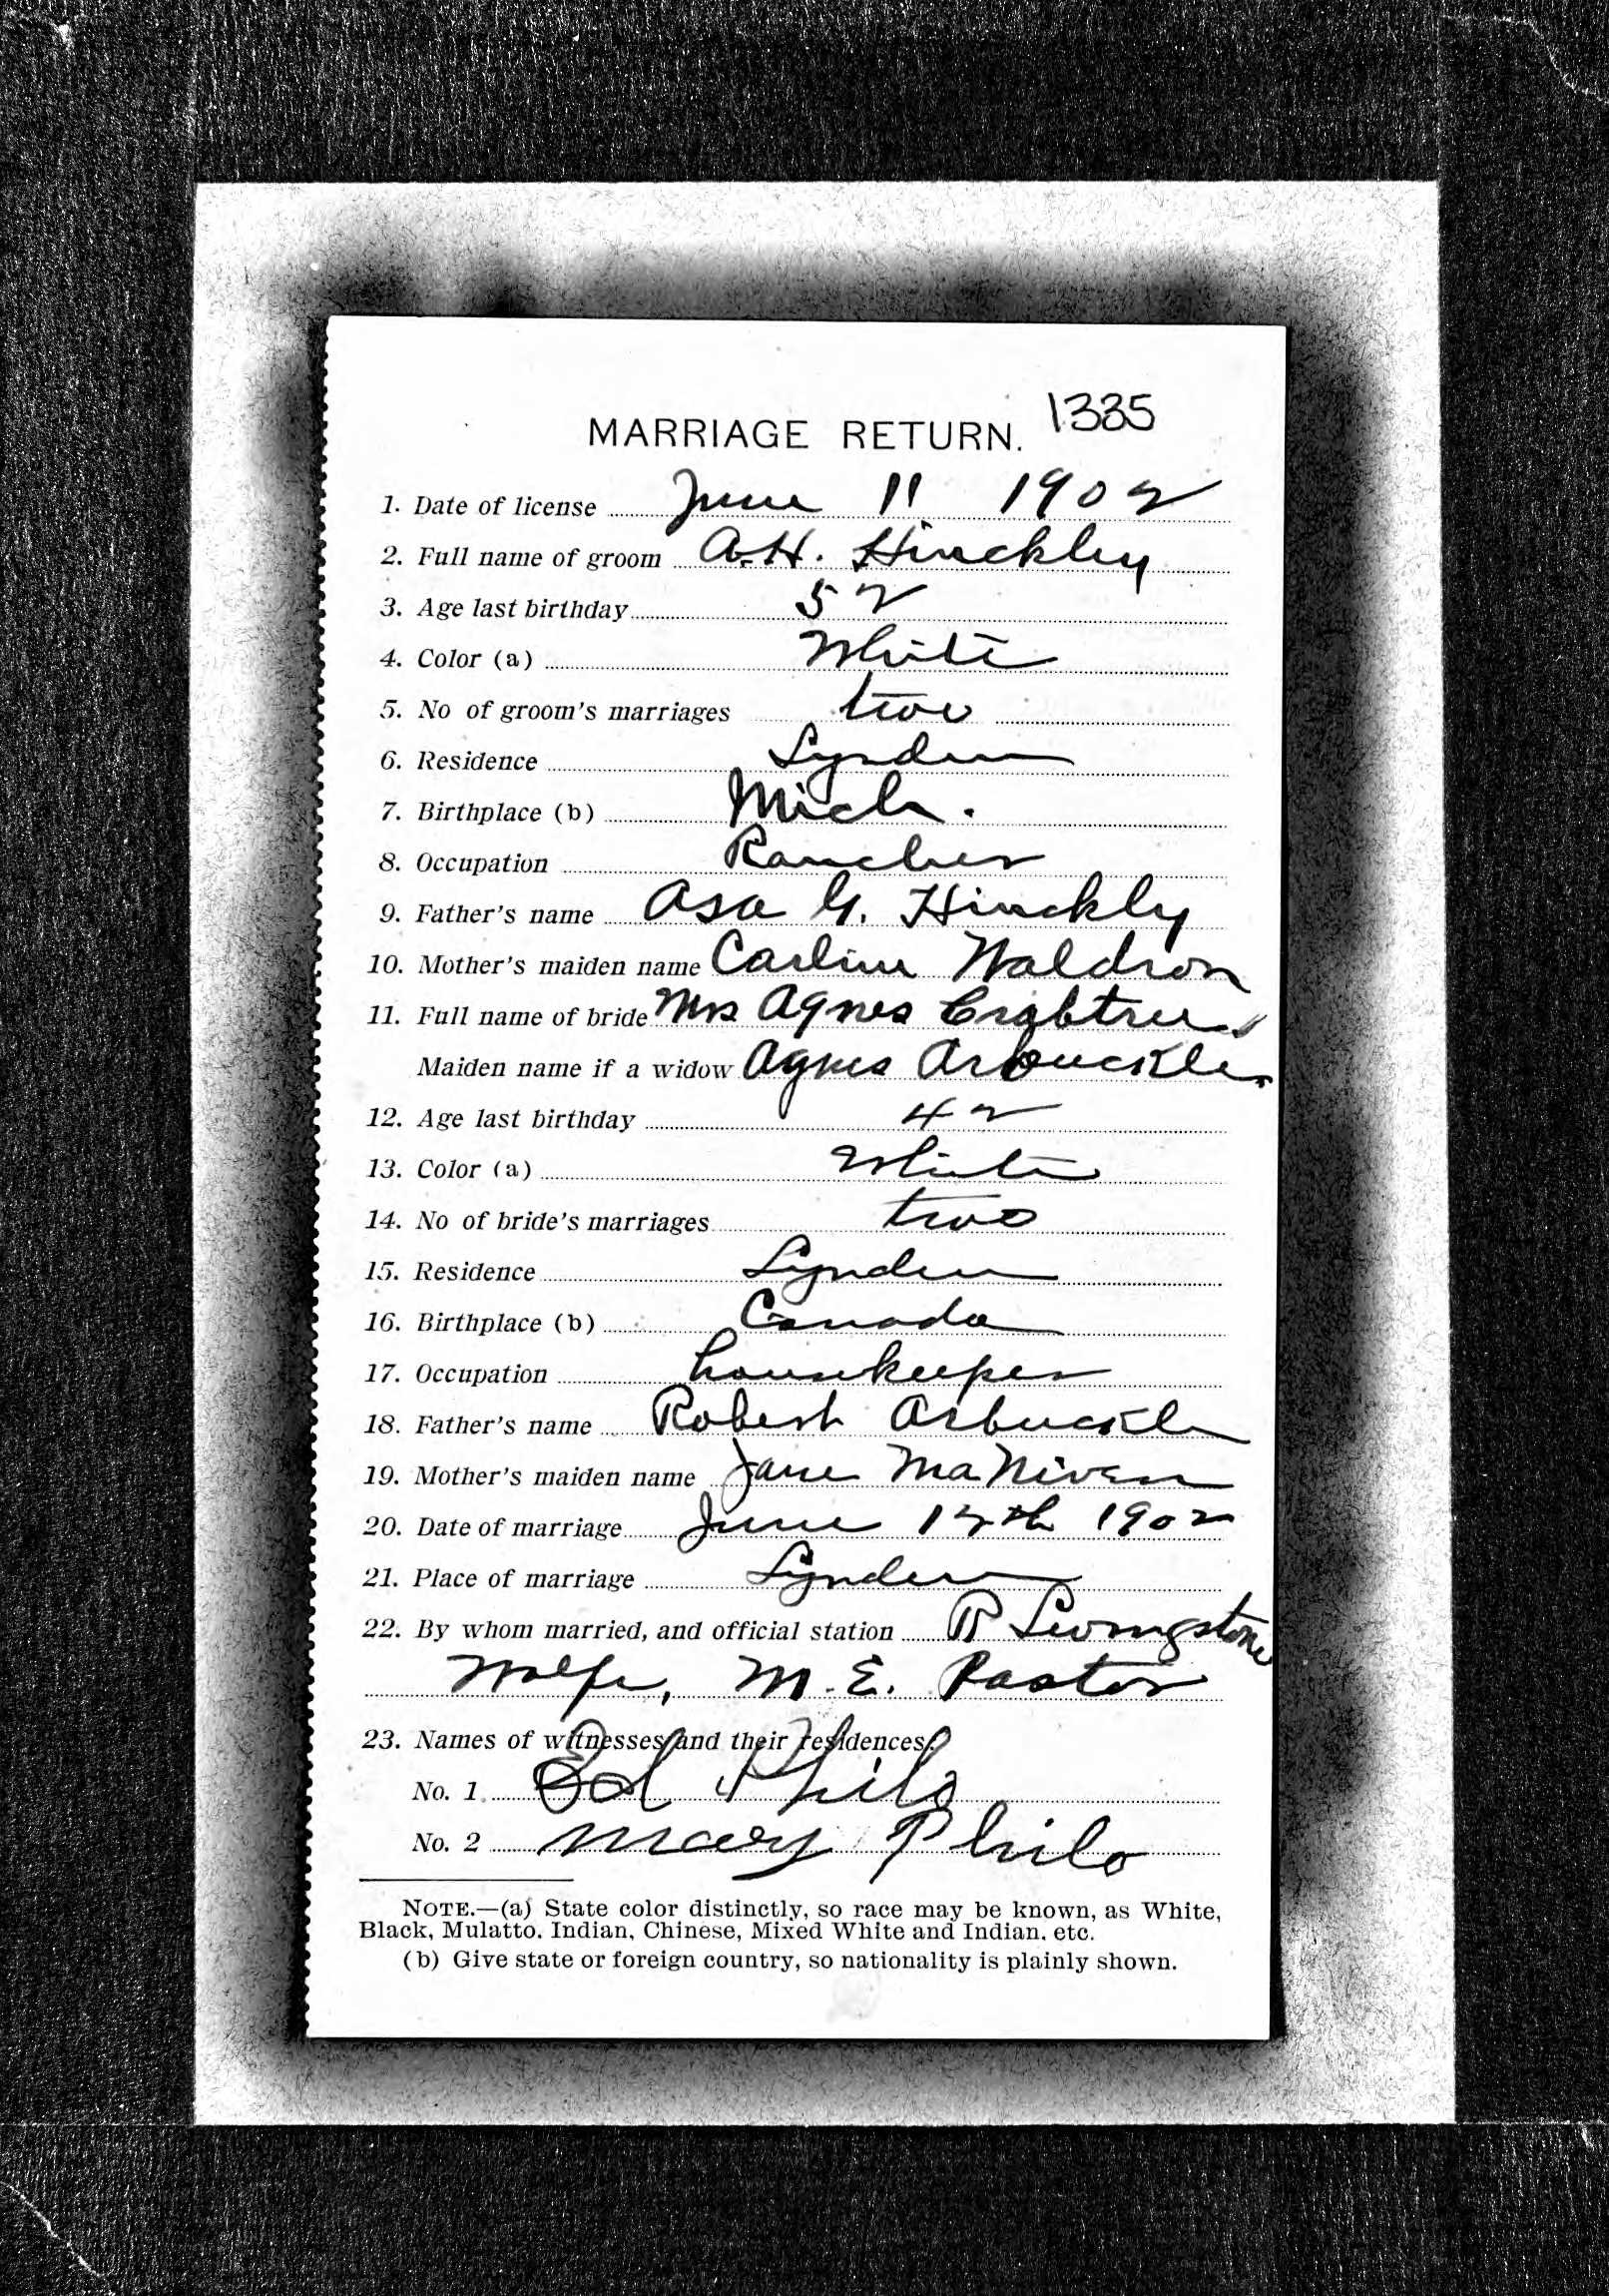 MARRIAGE RETURN. 1335
1. Date of license June 11 1902
2. Full name of groom A.H. Hinckley
3. Age last birthday 52
4. Color (a) White
5. No of groom's marriages two
6. Residence Lynden
7. Birthplace (b) Mich.
8. Occupation Rancher
9. Father's name Asa G. Hinckly
10. Mother's maiden name Carline Waldron
11. Full name of bride Mrs Agnes Crabtree
Maiden name if a widow Agnes Arbuckle
12. Age last birthday 42
13. Color (a) White
14. No of bride's marriages two
15. Residence Lynden
16. Birthplace (b) Canada
17. Occupation housekeeper
18. Father's name Robert Arbuckle
19. Mother's maiden name Jane MaNiven
20. Date of marriage June 12th 1902
21. Place of marriage Lynden
22. By whom married, and official station R Livingstone
Wolfe, M.E. Pastor
23. Names of witnesses and their residences:
No. 1 Ed Philo
No. 2 Mary Philo
NOTE.—(a) State color distinctly, so race may be known, as White,
Black, Mulatto. Indian, Chinese, Mixed White and Indian. etc.
(b) Give state or foreign country, so nationality is plainly shown.